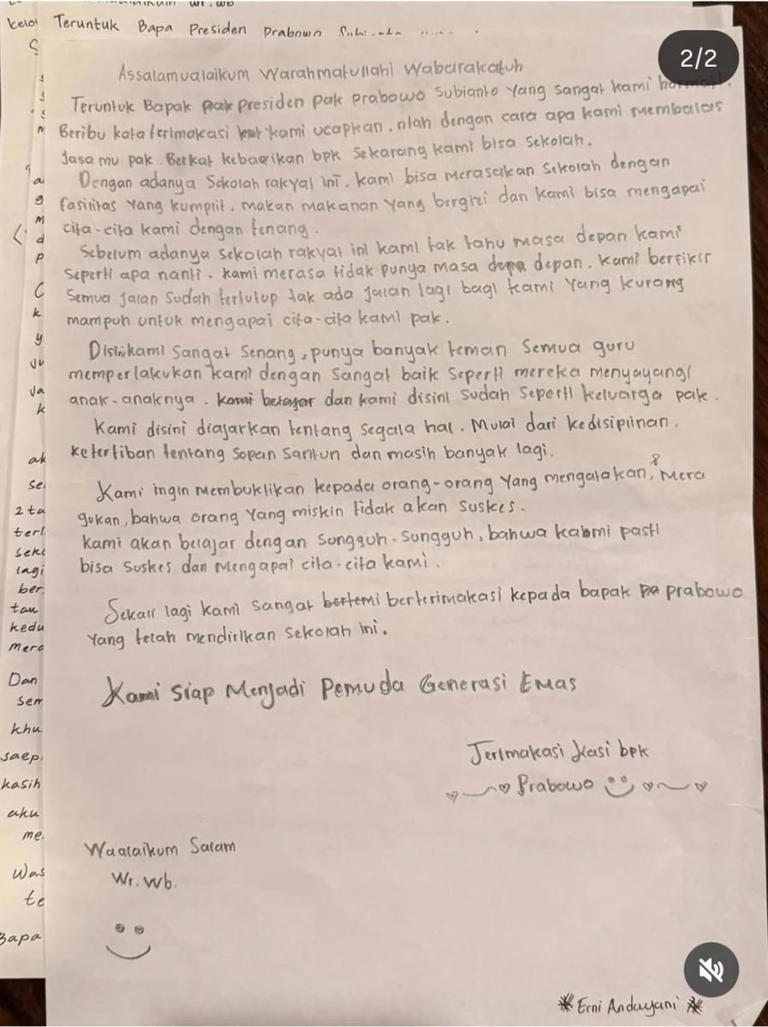 2/2
Teruntuk Bapa Presiden Prabowo
Assalamualaikum Warahmatullahi Wabarakatuh
Teruntuk Bapak pak presiden pak prabowo Subianto yang sangat kami hormati.
Beribu kata terimakasi kami ucapkan. ntah dengan cara apa kami membalas
Jasa mu pak. Berkat kebaikan bpk sekarang kami bisa sekolah.
Dengan adanya Sekolah rakyat ini. kami bisa merasakan sekolah dengan
fasilitas yang kumplit. makan makanan yang bergizi dan kami bisa mengapai
cita-cita kami dengan tenang.
Sebelum adanya sekolah rakyat ini kami tak tahu masa depan kami
seperti apa nanti. kami merasa tidak punya masa depa depan. kami berfikir
semua jalan sudah tertutup tak ada jalan lagi bagi kami yang kurang
mampuh untuk mengapai cita-cita kami pak.
Disini kami sangat senang, punya banyak teman semua guru
memperlakukan kami dengan sangat baik seperti mereka menyayangi
anak-anaknya. kami belajar dan kami disini sudah seperti keluarga pak.
Kami disini diajarkan tentang segala hal. Mulai dari kedisiplinan.
ketertiban tentang sopan santun dan masih banyak lagi.
Kami ingin membuktikan kepada orang-orang yang mengatakan, & mera
gukan, bahwa orang yang miskin tidak akan suskes.
kami akan belajar dengan sungguh-sungguh, bahwa kabmi pasti
bisa suskes dan mengapai cita-cita kami.
Sekali lagi kami sangat bertemi berterimakasi kepada bapak pa prabowo
yang telah mendirikan sekolah ini.
Kami siap Menjadi Pemuda Generasi Emas
Terimakasi kasi bpk
Prabowo
Waalaikum Salam
Wr. Wb.
Erni Anduyani